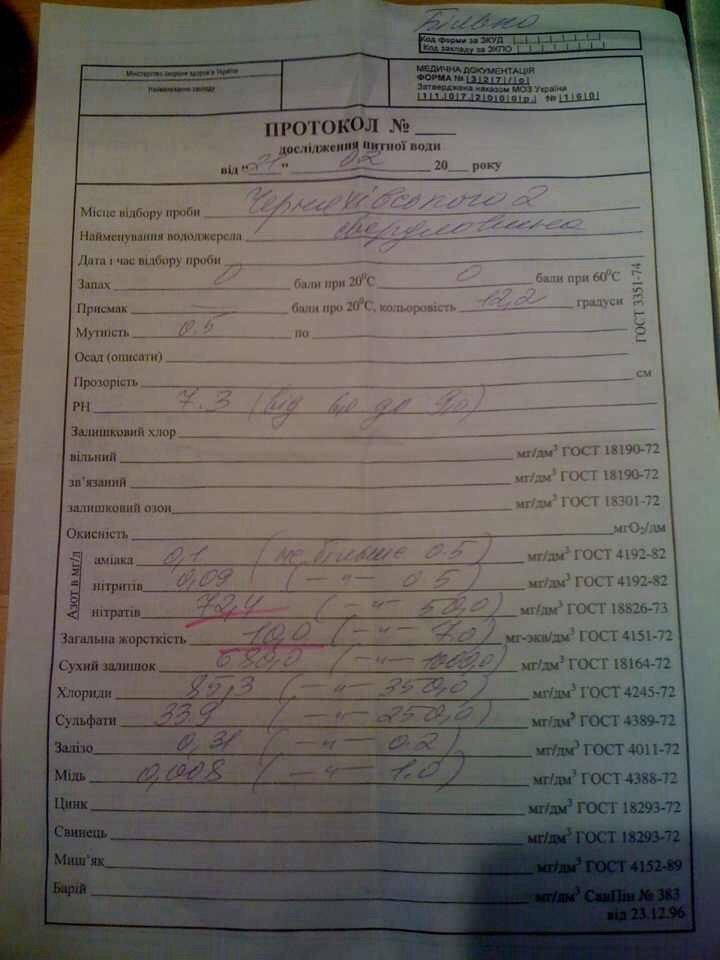 Більно
Код форми за ЗКУД
Код закладу за ЗКПО
Міністерство охорони здоров'я України
Найменування закладу
МЕДИЧНА ДОКУМЕНТАЦІЯ
ФОРМА № 327/о
Затверджена наказом МОЗ України
11.07.2000р. № 160
ПРОТОКОЛ № ____
дослідження питної води
від "21" 02 20___ року
Місце відбору проби Черняхівського 2
Найменування вододжерела свердловина
Дата і час відбору проби
Запах 0 бали при 20⁰С 0 бали при 60⁰С
Присмак бали про 20⁰С, кольоровість 12,2 градуси
ГОСТ 3351-74
Мутність 0.5 по
Осад (описати)
Прозорість см
РН 7.3 (від 6,0 до 9,0)
Залишковий хлор
вільний мг/дм³ ГОСТ 18190-72
зв'язаний мг/дм³ ГОСТ 18190-72
залишковий озон мг/дм³ ГОСТ 18301-72
Окисність мгО₂/дм
Азот в мг/л
аміака 0,1 (не більше 0.5) мг/дм³ ГОСТ 4192-82
нітритів 0,09 (—"— 0.5) мг/дм³ ГОСТ 4192-82
нітратів 72,4 (—"— 50,0) мг/дм³ ГОСТ 18826-73
Загальна жорсткість 10,0 (—"— 7.0) мг-экв/дм³ ГОСТ 4151-72
Сухий залишок 680,0 (—"— 1000,0) мг/дм³ ГОСТ 18164-72
Хлориди 85,3 (—"— 350,0) мг/дм³ ГОСТ 4245-72
Сульфати 339 (—"— 250,0) мг/дм³ ГОСТ 4389-72
Залізо 0,31 (—"— 0.2) мг/дм³ ГОСТ 4011-72
Мідь 0,008 (—"— 1.0) мг/дм³ ГОСТ 4388-72
Цинк мг/дм³ ГОСТ 18293-72
Свинець мг/дм³ ГОСТ 18293-72
Миш'як мг/дм³ ГОСТ 4152-89
Барій мг/дм³ СанПін № 383
від 23.12.96